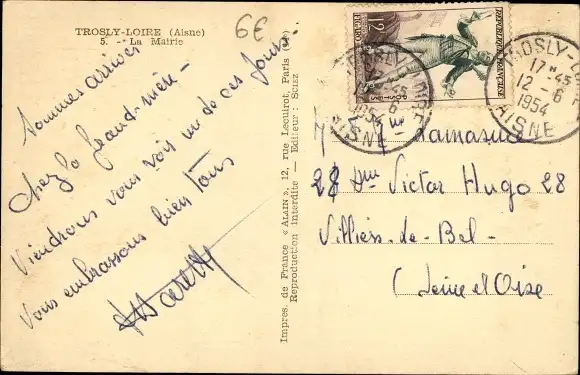 TROSLY-LOIRE (Aisne)
5. - La Mairie
6€
Sommes arrivés
chez la Grand-mère
Viendrons vous voir un de ces jours.
Vous embrassons bien tous
Impres. de France « ALAIN », 12, rue Lecuirot, Paris (14e)
Reproduction interdite — Editeur :
12F
RÉPUBLIQUE FRANÇAISE
TROSLY-LOIRE
17 H 45
12 - 6
1954
AISNE
TROSLY-LOIRE
17 H 45
12 - 6
1954
AISNE
28 Victor Hugo 28
Villiers-de-Bel-
(Seine et Oise